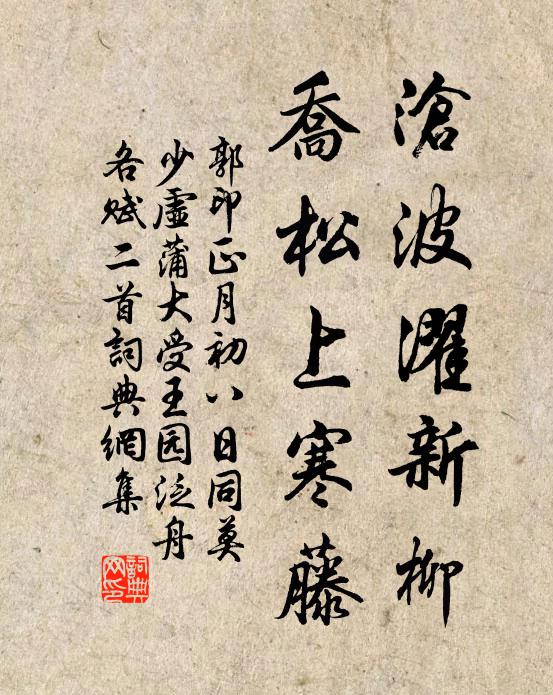 滄波濯新柳
喬松上寒藤
郭印正月初八日同莫
少虛蒲大受王园泛舟
各赋二首詞典網集
詞典
网印